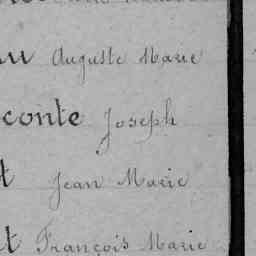 Auguste Marie
conte Joseph
t Jean Marie
t François Marie